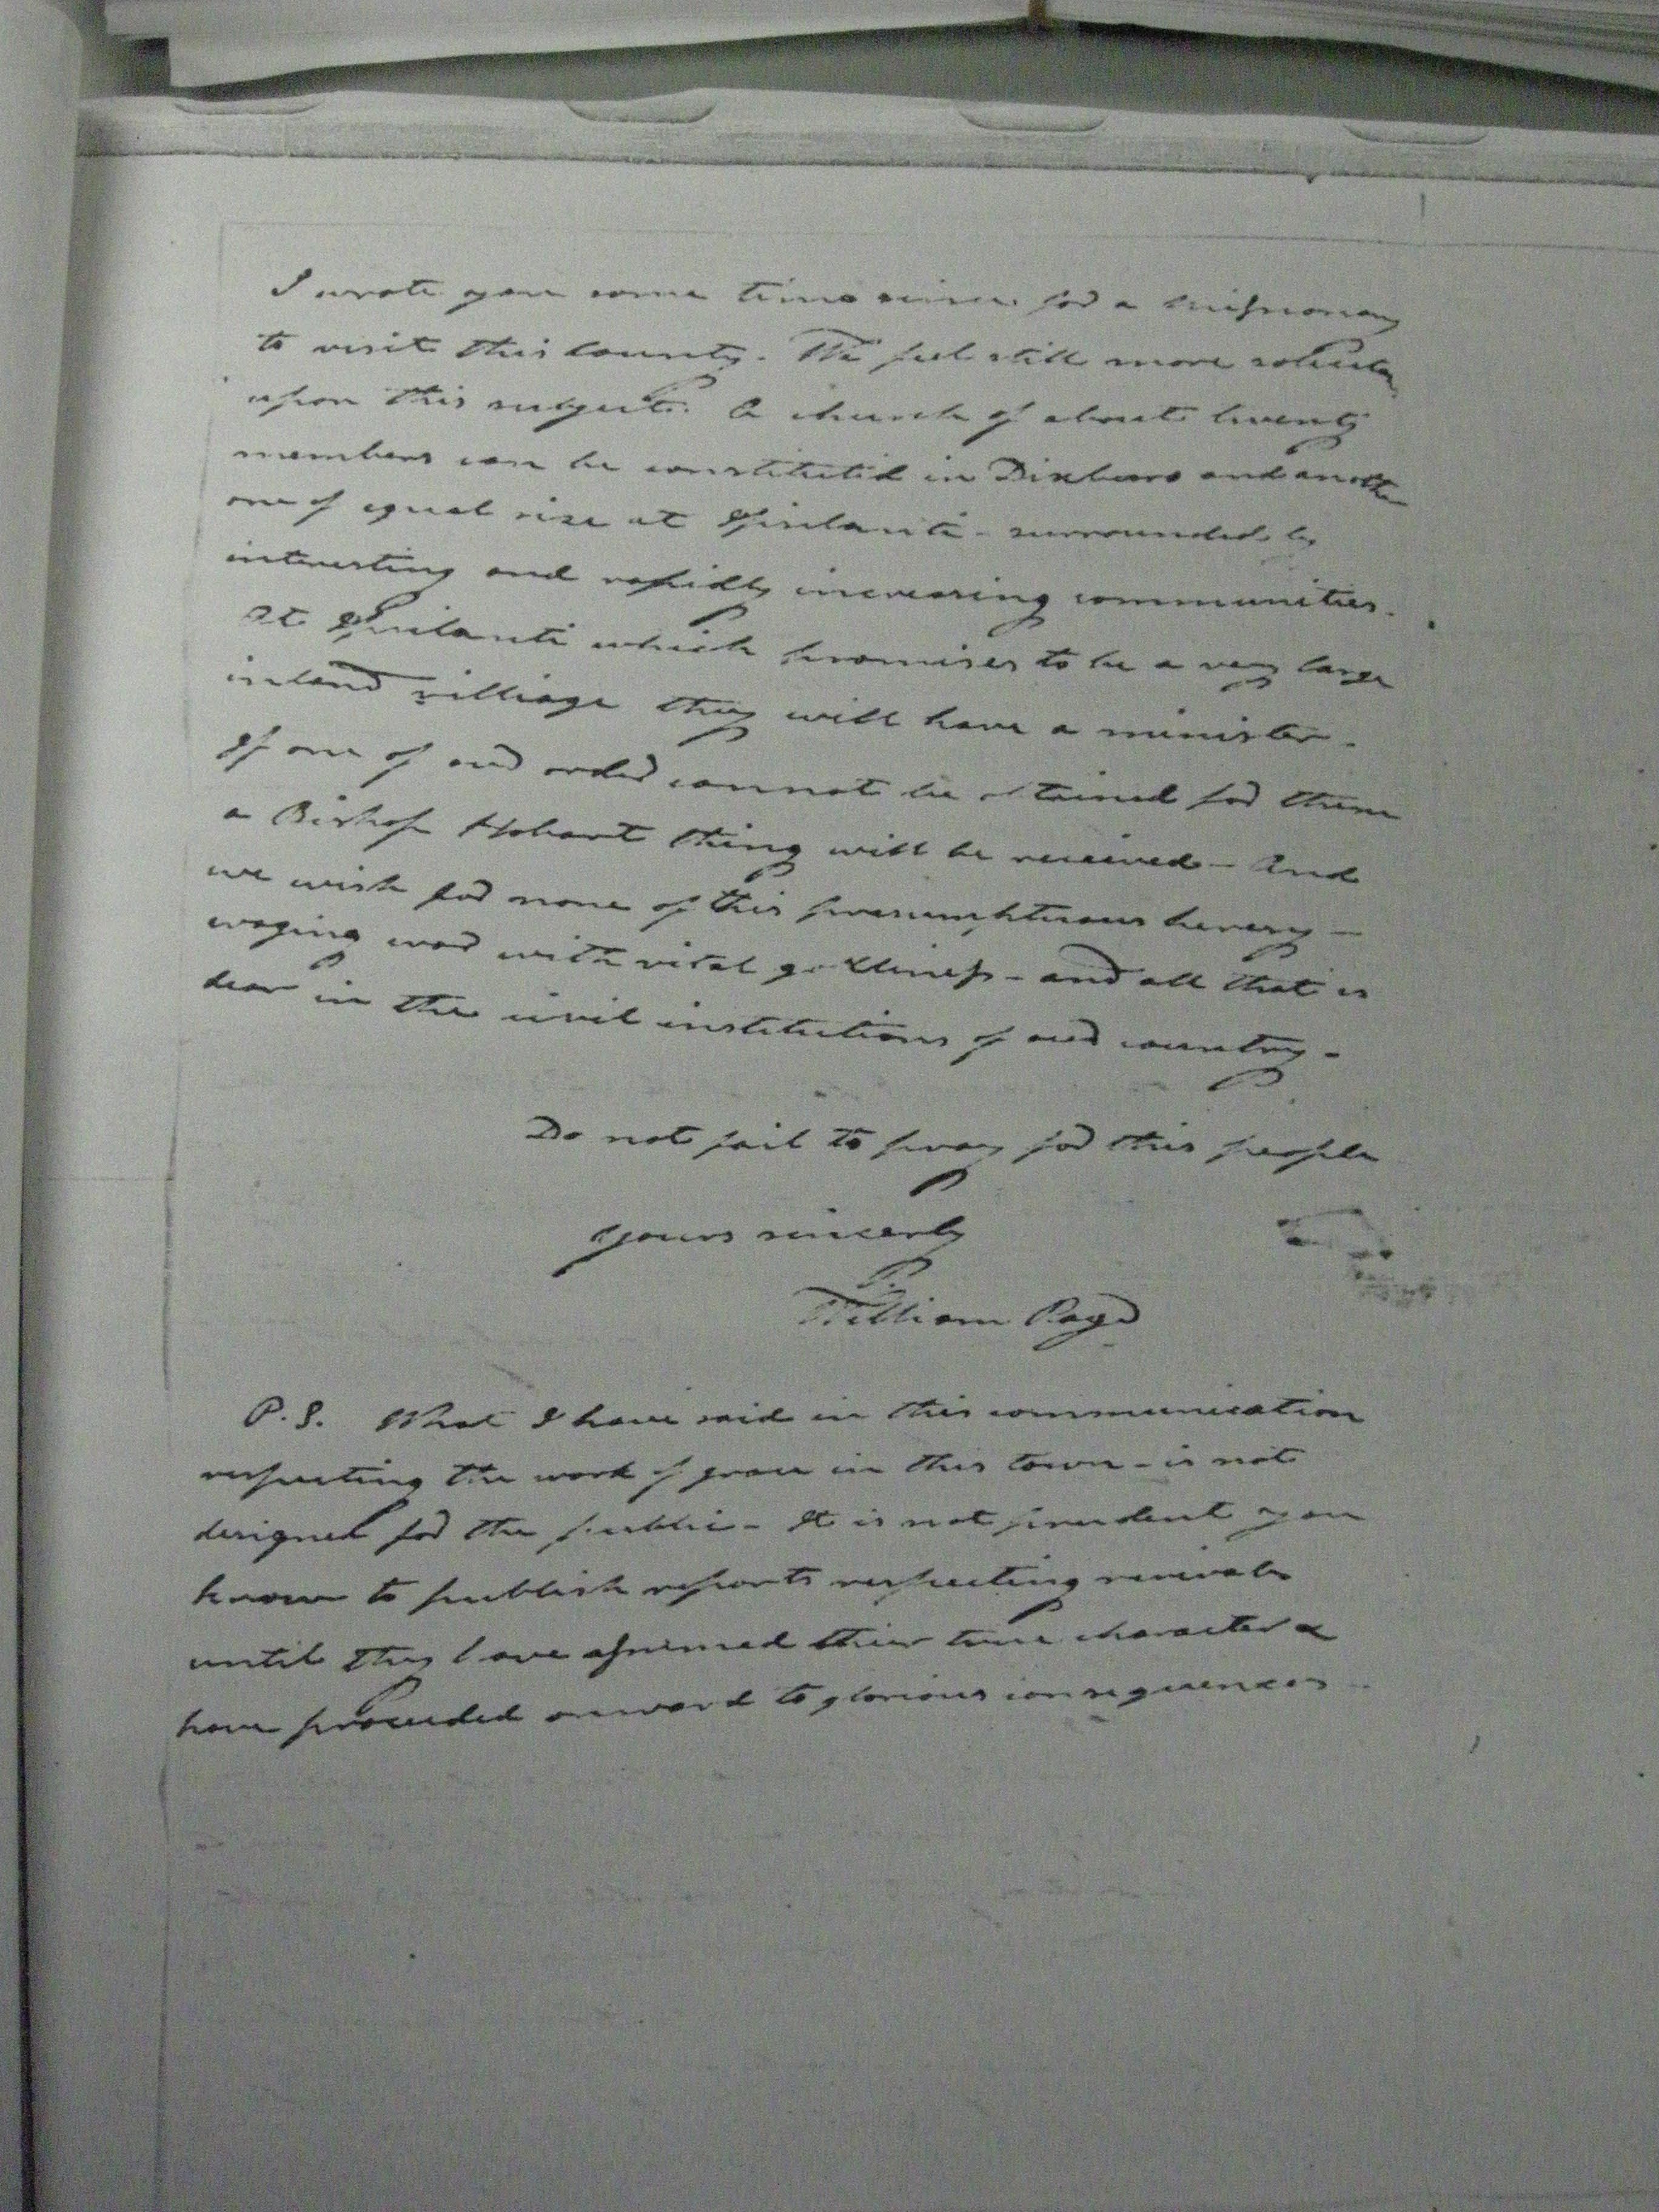 I wrote you some time since for a missionary
to visit this County. We feel still more solicitu
upon this subject. A church of about twenty
members can be constituted in Dixboro and another
one of equal size at Ypsilanti - surrounded by
interesting and rapidly increasing communities.
At Ypsilanti which promises to be a very large
inland villiage they will have a minister.
If one of our order cannot be obtained for them
a Bishop Hobart thing will be received - And
we wish for none of this presumptuous heresy -
waging war with vital godliness - and all that is
dear in the civil institutions of our country -
Do not fail to pray for this people
Yours sincerly
William Page
P.S. What I have said in this communication
respecting the work of grace in this town - is not
designed for the public - It is not prudent you
know to publish reports respecting revivals
until they have assumed their true character &
have proceeded onward to glorious consequences